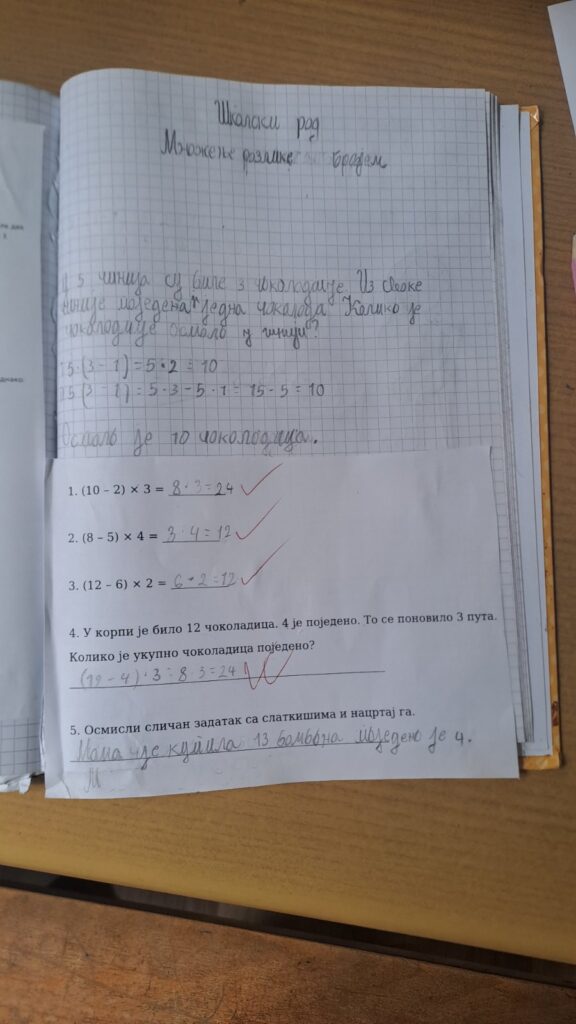 Школски рад
Множење разлике бројем
5 чинија су биле 3 чоколадице. Из сваке
чиније поједена је једна чоколада Колико је
чоколадице остало у чинији?
5·(3-1)=5·2=10
5(3-1)=5·3-5·1=15-5=10
Остало је 10 чоколадица.
1. (10 – 2) × 3 = 8·3=24
2. (8 – 5) × 4 = 3·4=12
3. (12 – 6) × 2 = 6·2=12
4. У корпи је било 12 чоколадица. 4 је поједено. То се поновило 3 пута.
Колико је укупно чоколадица поједено?
(12-4)·3=8·3=24
5. Осмисли сличан задатак са слаткишима и нацртај га.
Мама је купила 13 бомбона поједено је 4.
М